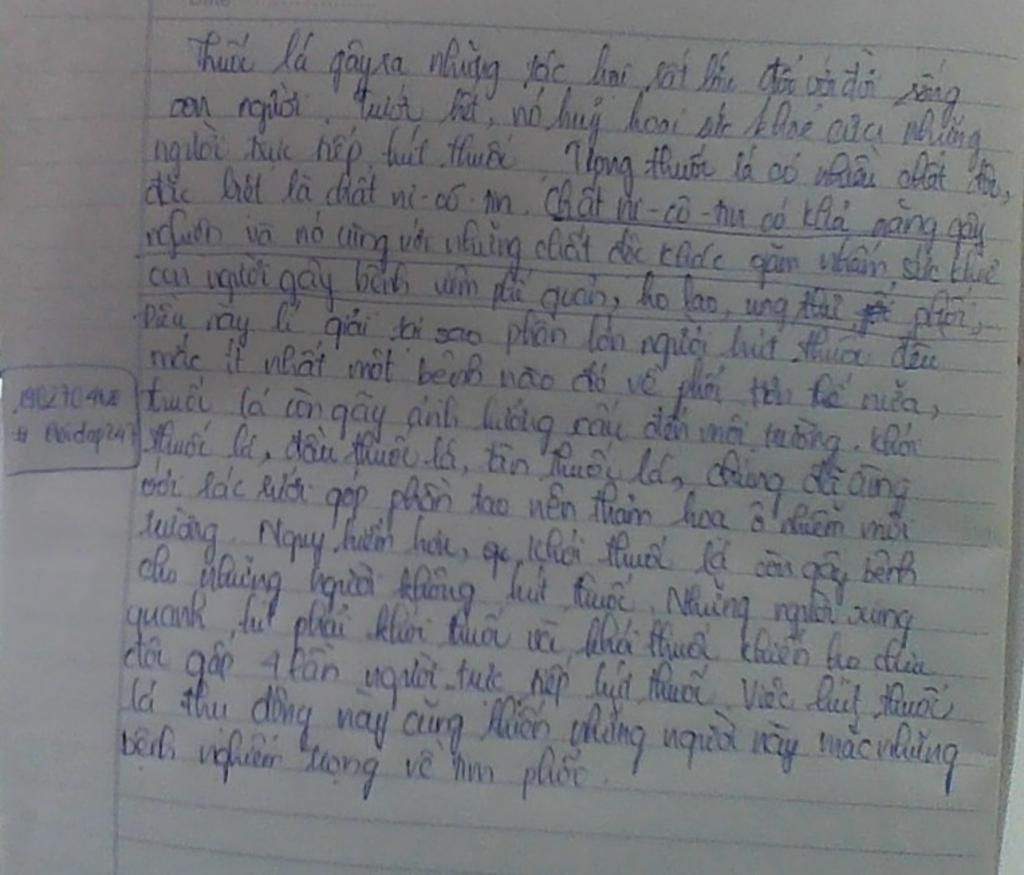 Thuốc lá gây ra những tác hại rất lớn đối với đời sống
con người. Trước hết, nó huỷ hoại sức khoẻ của những
người trực tiếp hút thuốc. Trong thuốc lá có nhiều chất độc,
đặc biệt là chất ni-cô-tin. Chất ni-cô-tin có khả năng gây
nghiện và nó cùng với những chất độc khác gặm nhấm sức khoẻ
con người gây bệnh viêm phế quản, ho lao, ung thư phổi,
Điều này lí giải tại sao phần lớn người hút thuốc đều
mắc ít nhất một bệnh nào đó về phổi. Hơn thế nữa,
thuốc lá còn gây ảnh hưởng xấu đến môi trường. Khói
thuốc lá, đầu thuốc lá, tàn thuốc lá, chúng đã cùng
với rác rưởi góp phần tạo nên thảm hoạ ô nhiễm môi
trường. Nguy hiểm hơn, khói thuốc lá còn gây bệnh
cho những người không hút thuốc. Những người xung
quanh hít phải khói thuốc và khói thuốc khiến họ chịu
độc gấp 4 lần người trực tiếp hút thuốc. Việc hút thuốc
lá thụ động này cũng khiến những người này mắc những
bệnh nghiêm trọng về tim phổi.